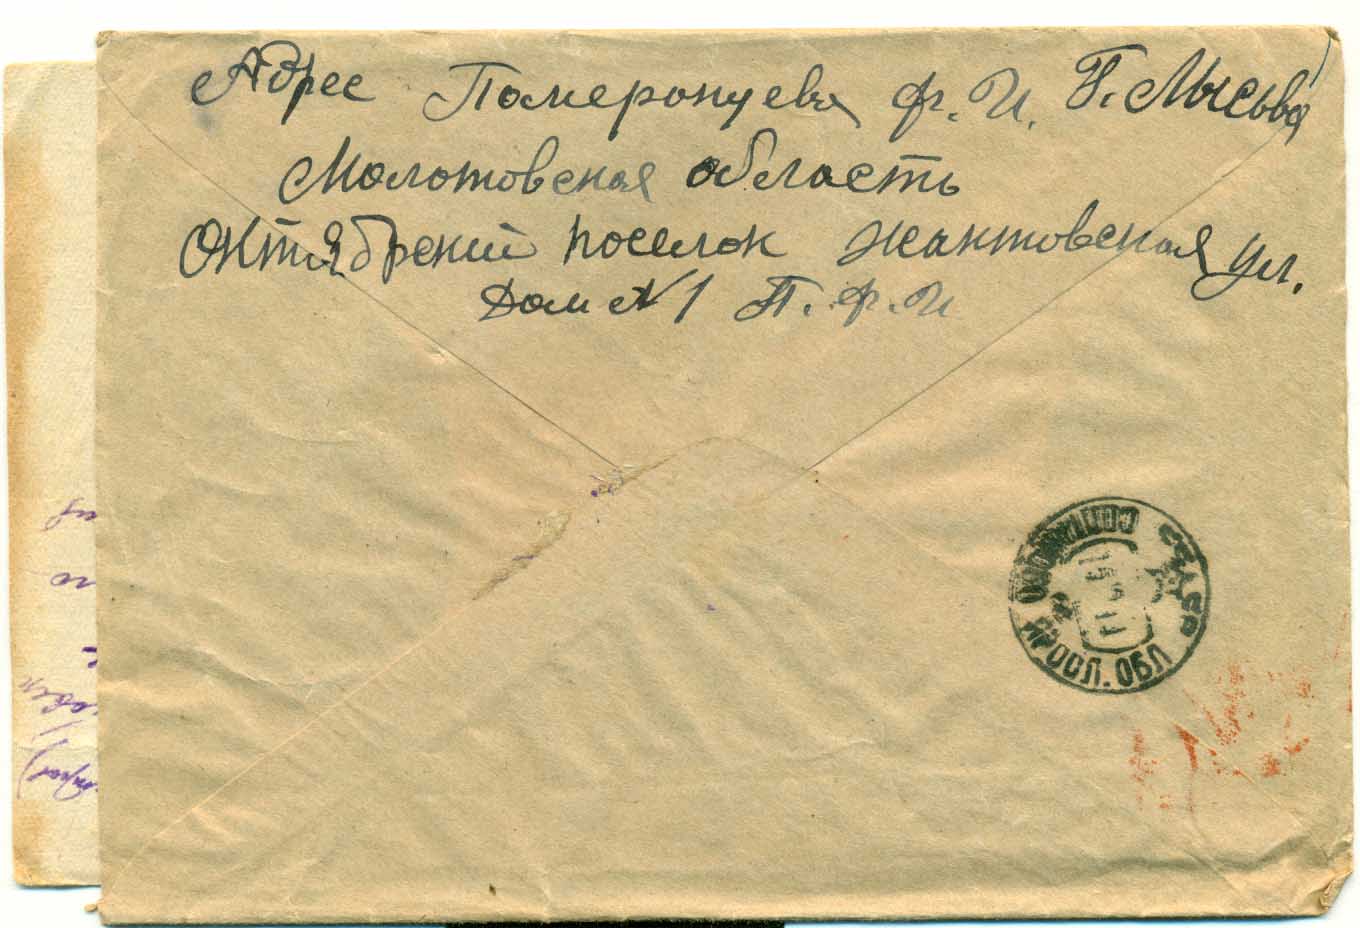 Адрес Померанцева Ф. И. Г. Лысьва
Молотовская область
Октябрский поселок
ул.
Дом N 1 П. Ф. И
СССР
ЯРОСЛ. ОБЛ